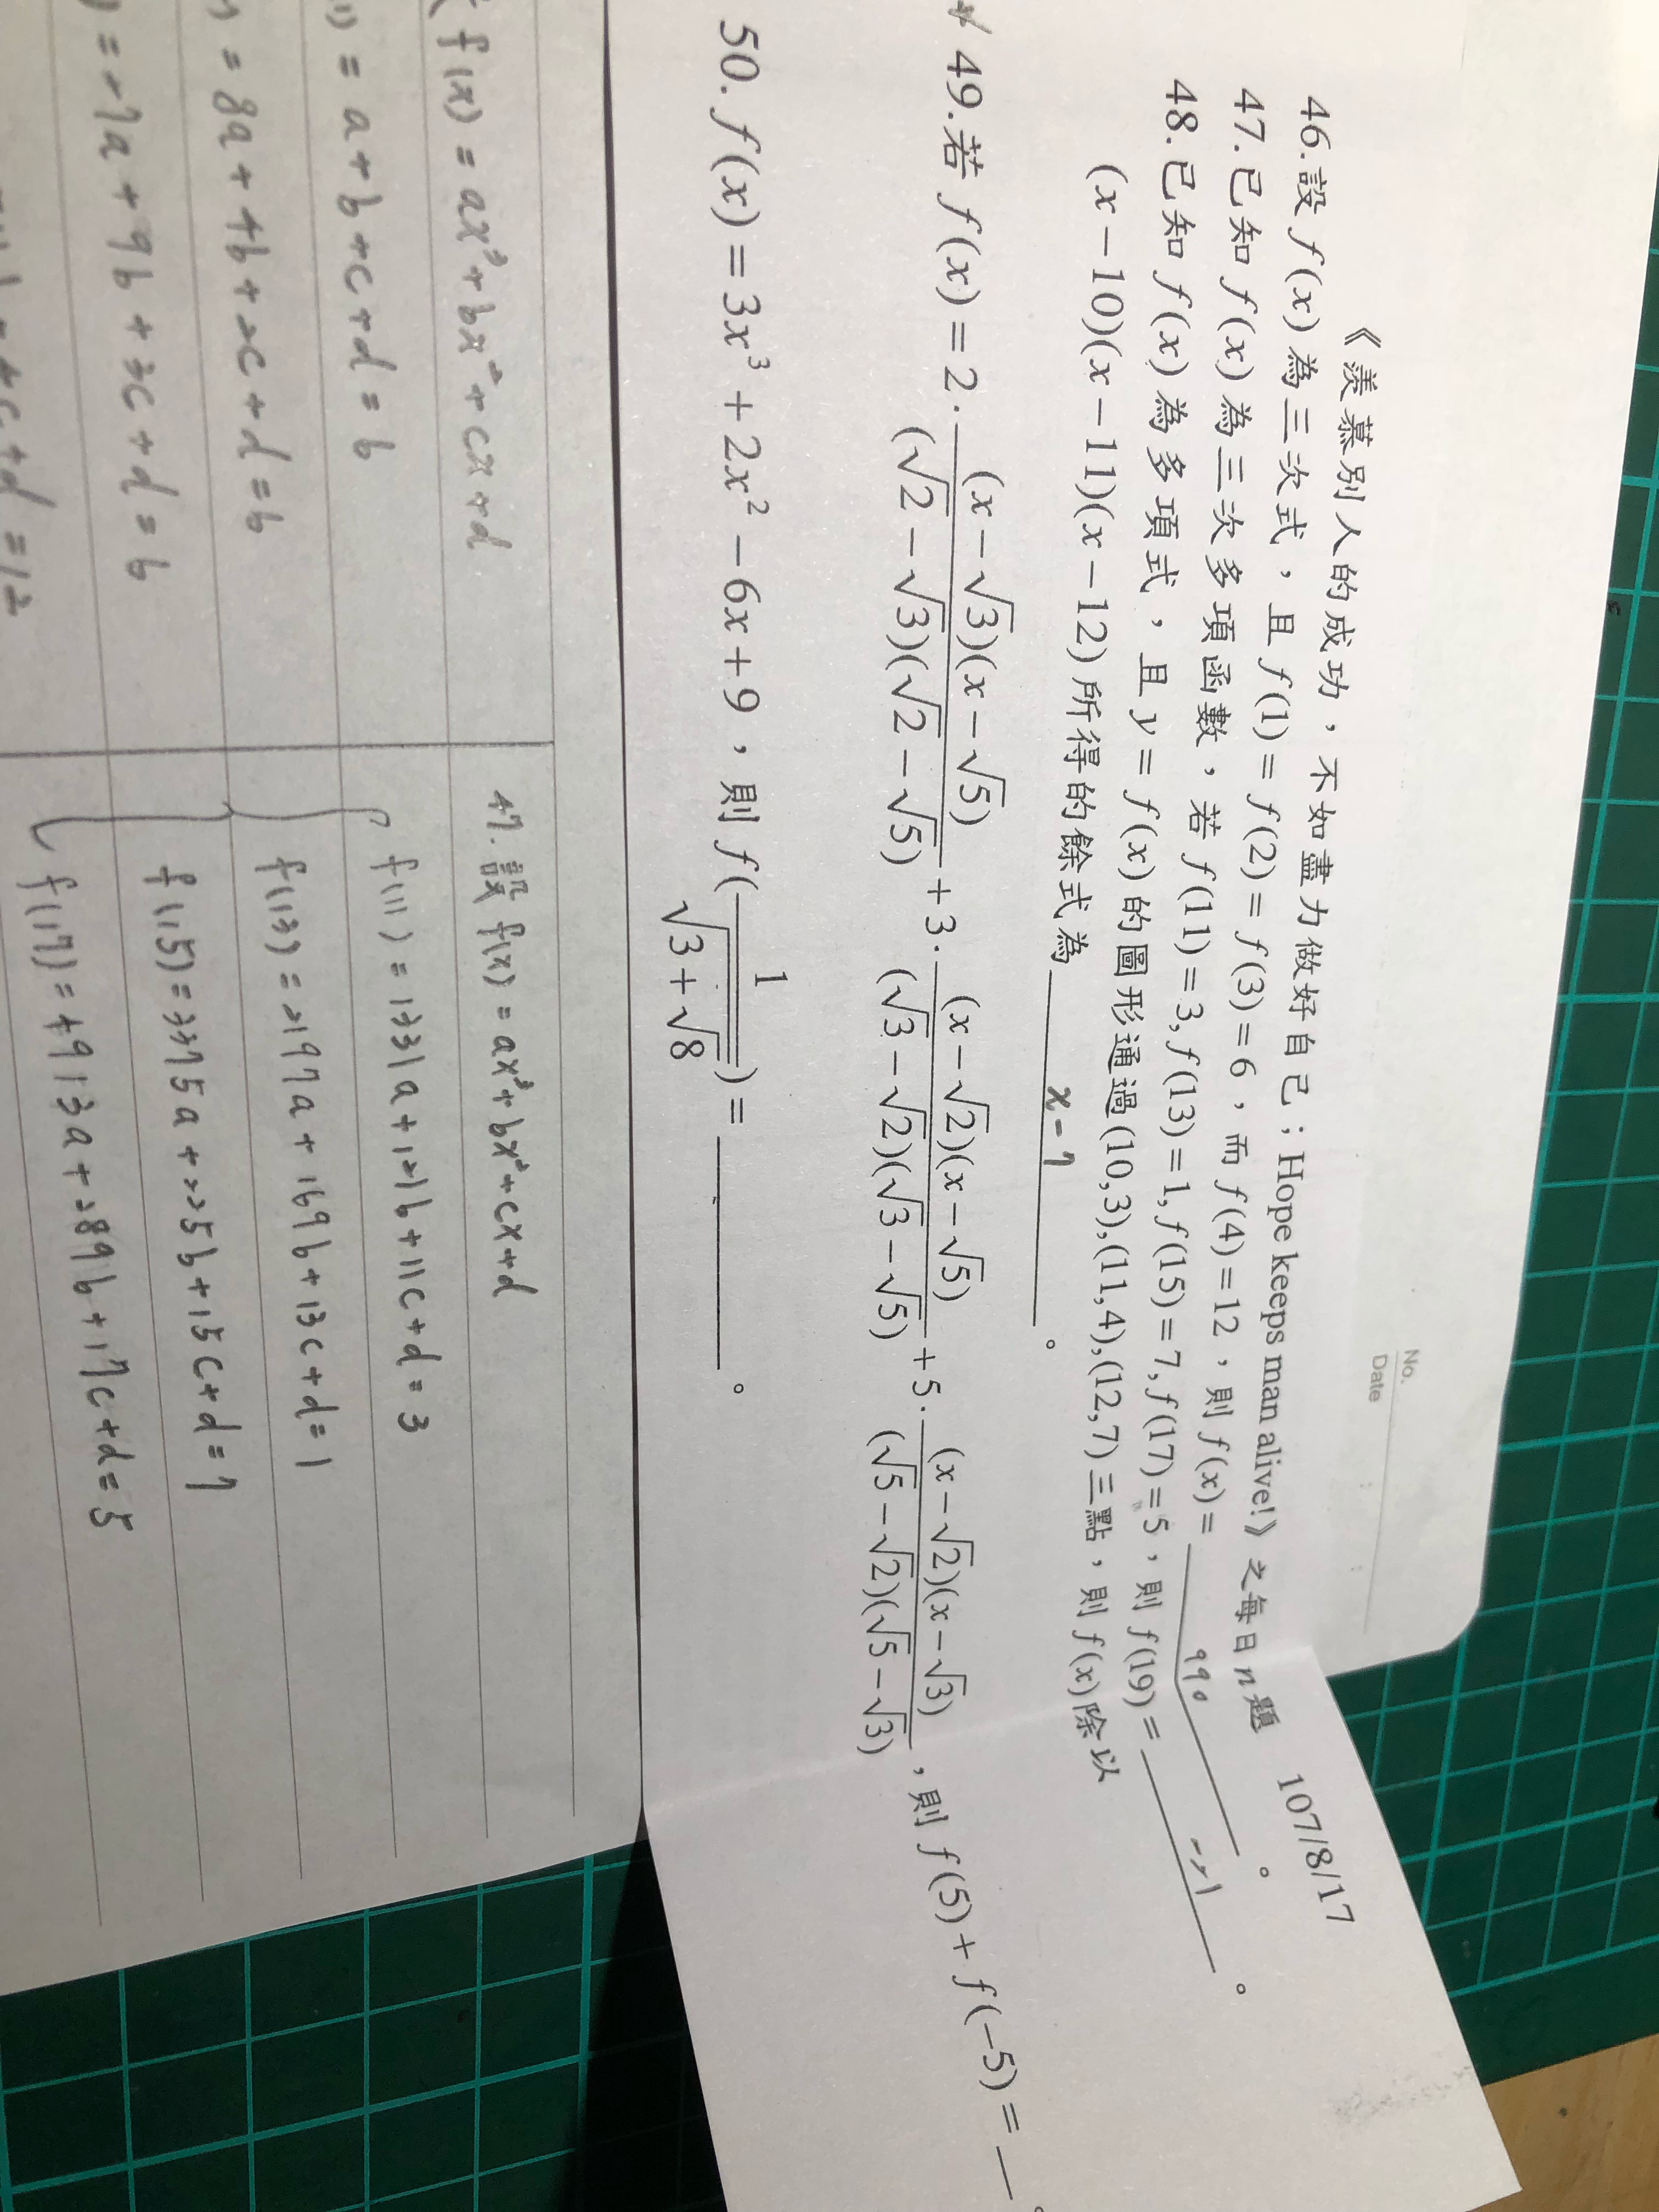 No.
Date : :
《羨慕別人的成功，不如盡力做好自己；Hope keeps man alive!》之每日n題 107/8/17
46.設 f(x) 為三次式，且 f(1)=f(2)=f(3)=6，而 f(4)=12，則 f(x)=________。
990
47.已知 f(x) 為三次多項函數，若 f(11)=3, f(13)=1, f(15)=7, f(17)=5，則 f(19)=____-21____。
48.已知 f(x) 為多項式，且 y=f(x) 的圖形通過 (10,3),(11,4),(12,7) 三點，則 f(x) 除以
(x-10)(x-11)(x-12) 所得的餘式為____x-7____。
49.若 f(x)=2·(x-√3)(x-√5)/(√2-√3)(√2-√5)+3·(x-√2)(x-√5)/(√3-√2)(√3-√5)+5·(x-√2)(x-√3)/(√5-√2)(√5-√3)，則 f(5)+f(-5)=__。
50. f(x)=3x³+2x²-6x+9，則 f(1/√(3+√8))=________。
f(x)=ax³+bx²+cx+d
1)=a+b+c+d=6
)=8a+4b+2c+d=6
)=27a+9b+3c+d=6
+4c+d=12
47. 設 f(x)=ax³+bx²+cx+d
f(11)=1331a+121b+11c+d=3
f(13)=2197a+169b+13c+d=1
f(15)=3375a+225b+15c+d=7
f(17)=4913a+289b+17c+d=5